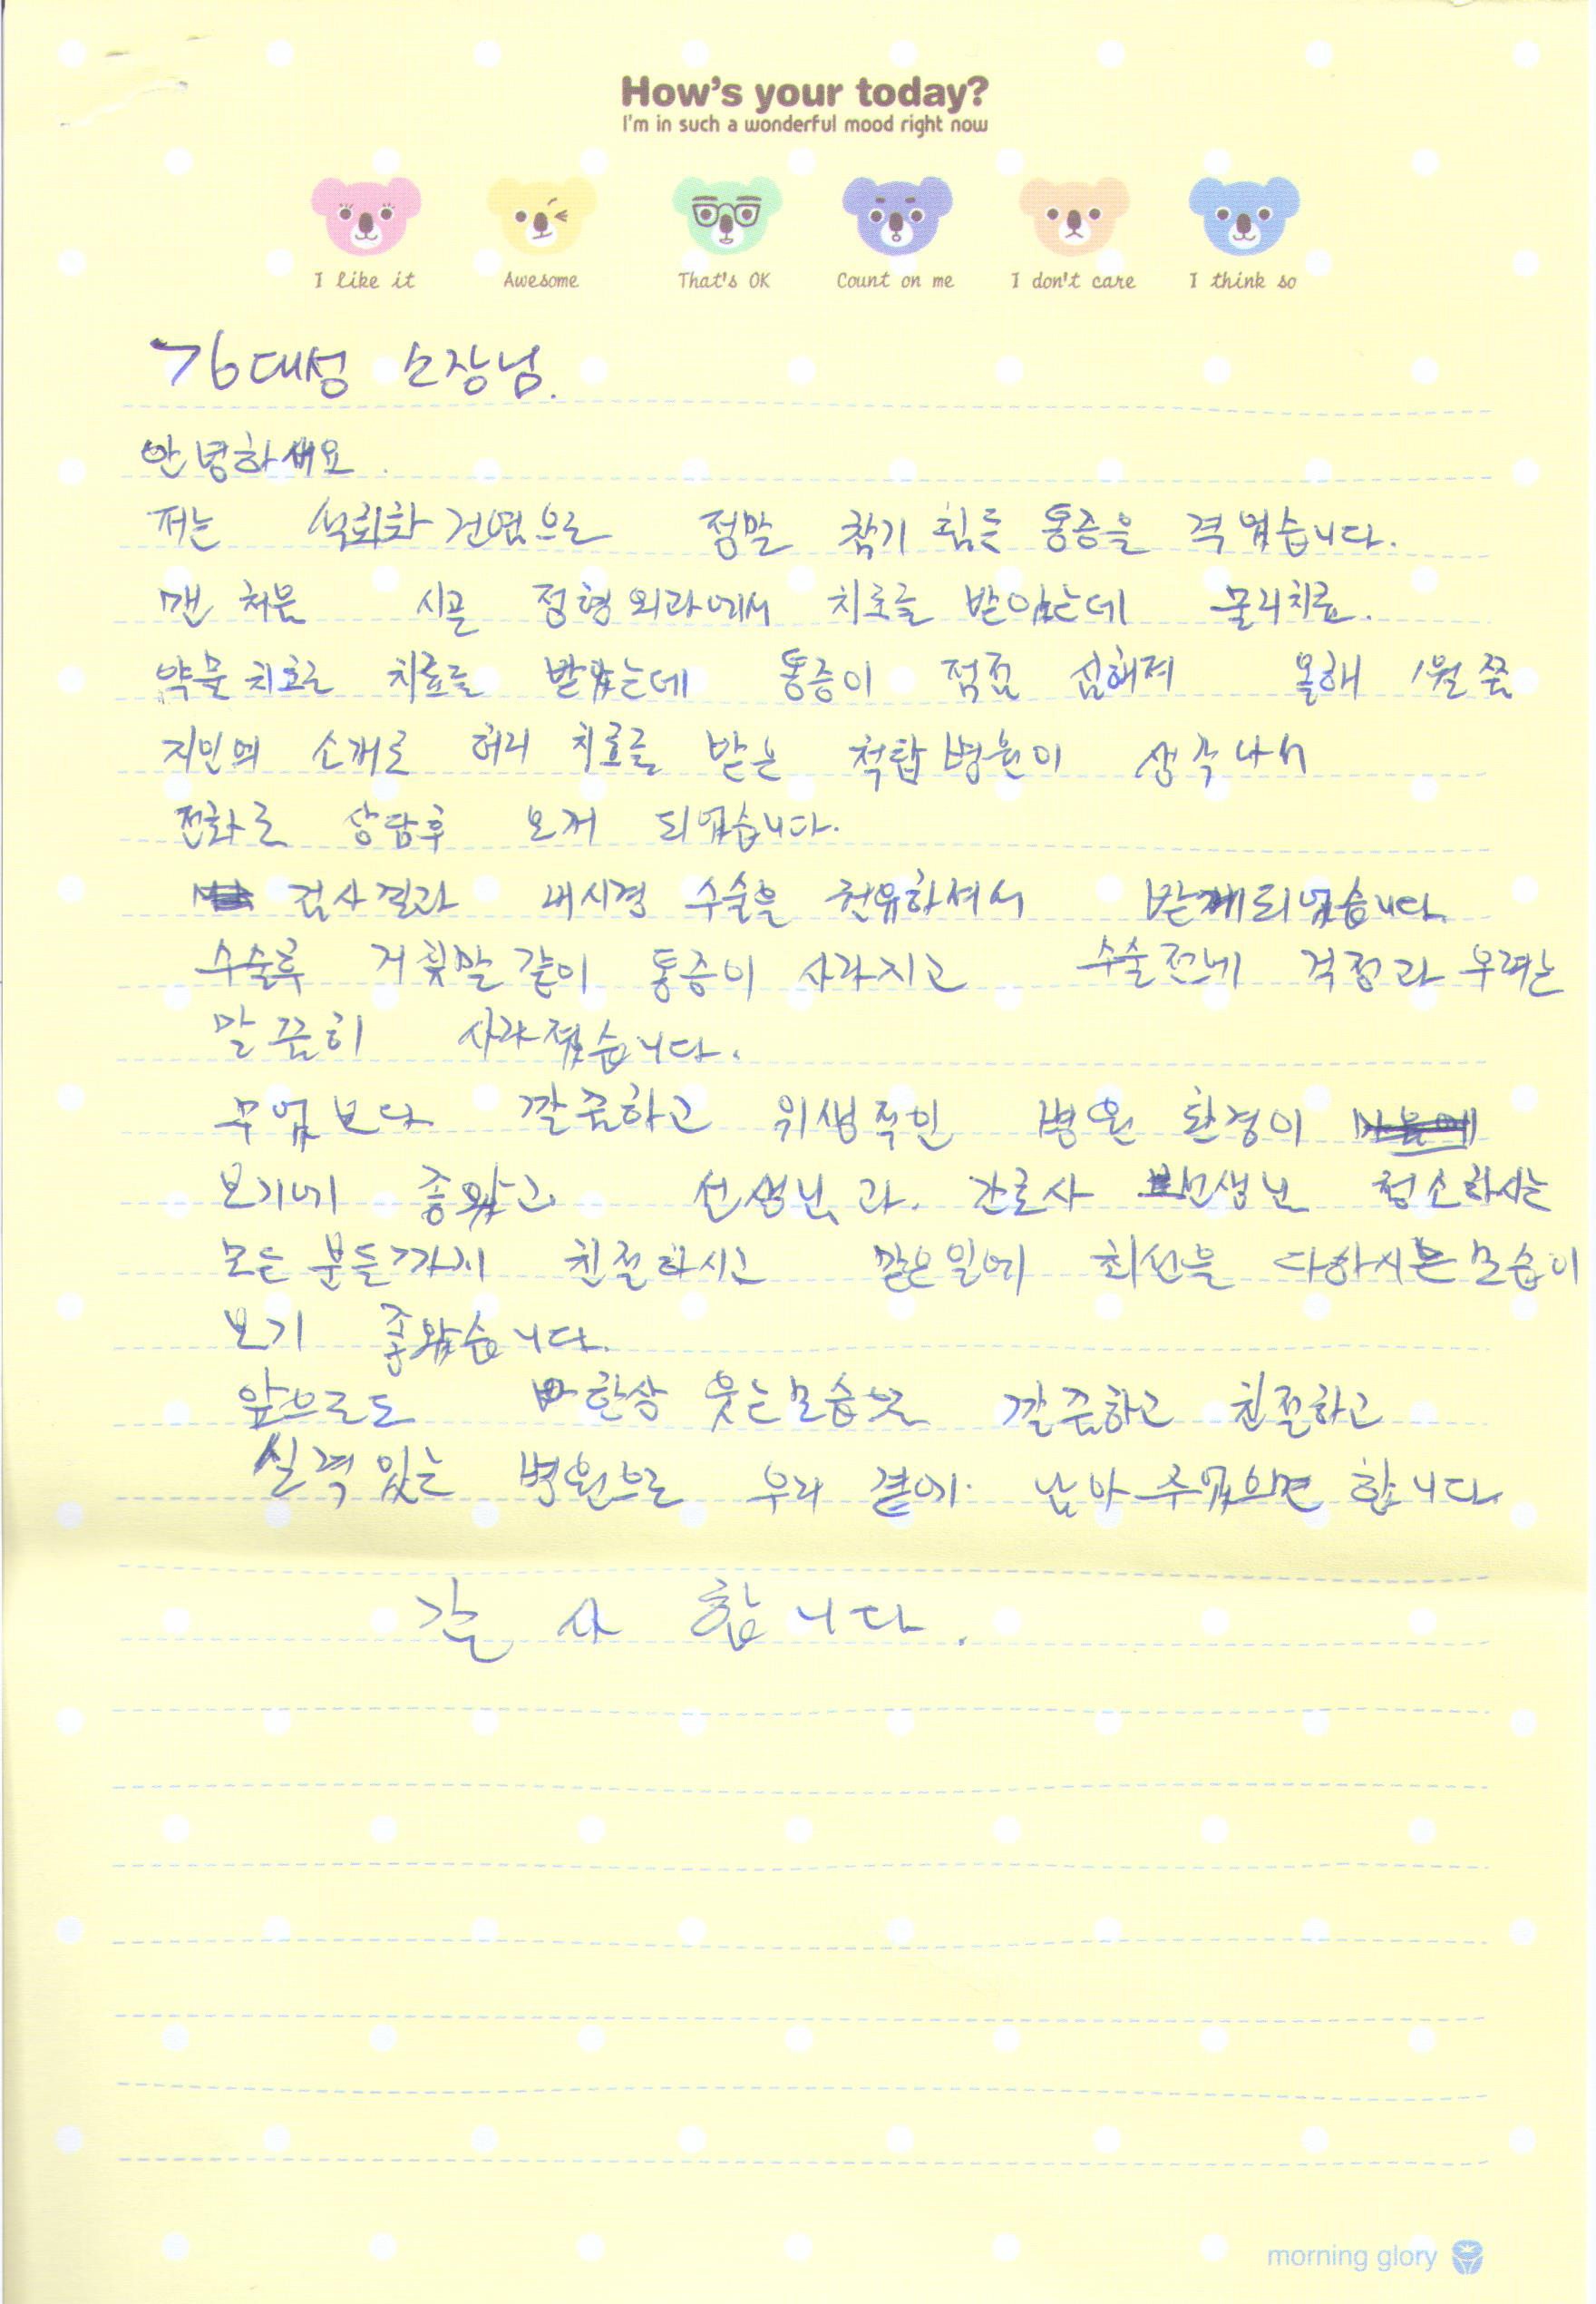 How's your today?
I'm in such a wonderful mood right now
I like it Awesome That's OK Count on me I don't care I think so
김대성 소장님.
안녕하세요.
저는 석회화건염으로 정말 참기 힘든 통증을 격었습니다.
맨 처음 시골 정형외과에서 치료를 받았는데 물리치료.
약물치료로 치료를 받았는데 통증이 점점 심해져 올해 1월쯤
지인의 소개로 허리 치료를 받은 척탑병원이 생각나서
전화로 상담후 오게 되었습니다.
검사결과 내시경 수술을 권유하셔서 받게되었습니다.
수술후 거짓말같이 통증이 사라지고 수술전에 걱정과 우려는
말끔히 사라졌습니다.
무엇보다 깔끔하고 위생적인 병원 환경이
보기에 좋았고 선생님과. 간호사 선생님 청소하시는
모든 분들까지 친절하시고 맡은일에 최선을 다하시는모습이
보기 좋았습니다.
앞으로도 항상 웃는모습으로 깔끔하고 친절하고
실력있는 병원으로 우리 곁에. 남아주었으면 합니다.
감사합니다.
morning glory